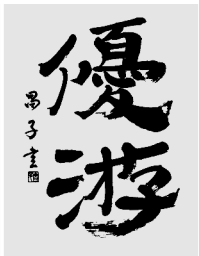 優游
昌子書